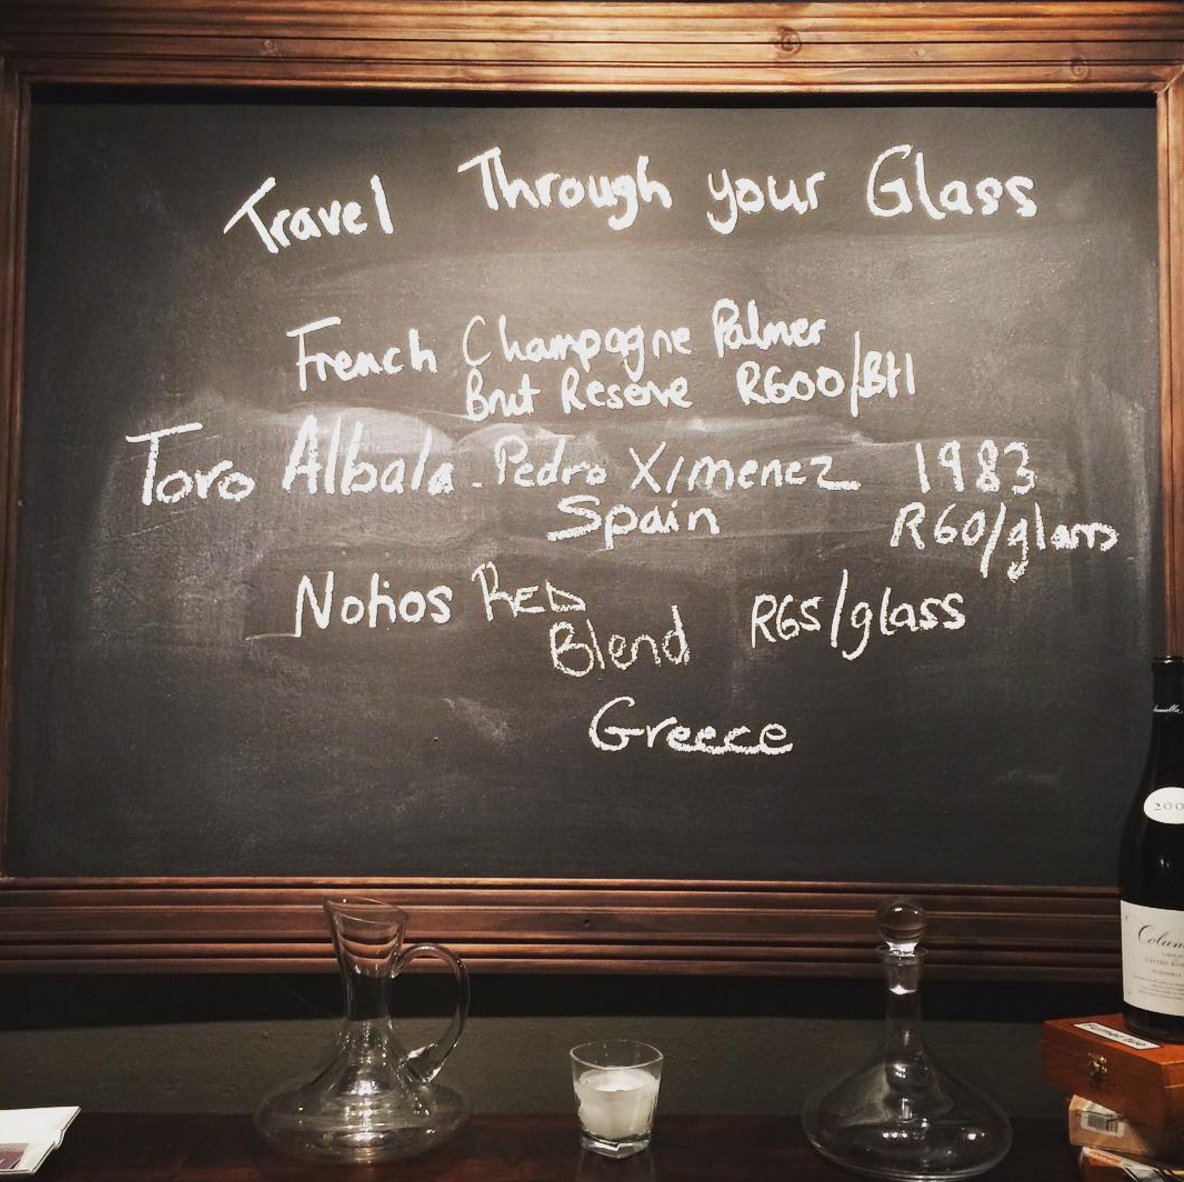 Travel Through your Glass
French Champagne Palmer
Brut Reserve R600/Btl
Toro Albala - Pedro Ximenez 1983
Spain R60/glass
Notios RED
Blend R65/glass
Greece
200
Colum